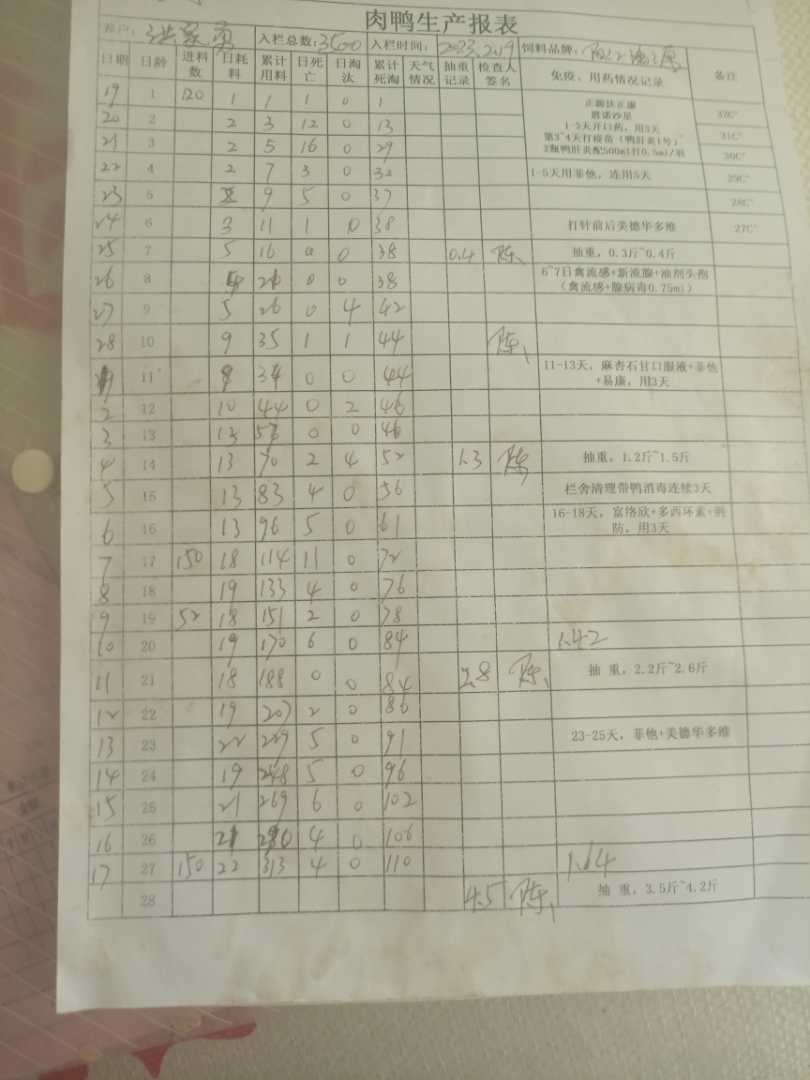 肉鸭生产报表
养户: 入栏总数:3500 入栏时间:2023.2.19 饲料品牌:
日期 日龄 进料数 日耗料 累计用料 日死亡 日淘汰 累计死淘 天气情况 抽重记录 检查人签名 免疫、用药情况记录 备注
19 1 120 1 1 1 0 1 正源扶正康
恩诺沙星 32C°
20 2 2 3 12 0 13 1-3天开口药,用3天 31C°
21 3 2 5 16 0 29 第3~4天打疫苗(鸭肝炎1号)
2瓶鸭肝炎配500ml打0.5ml/羽 30C°
22 4 2 7 3 0 32 1-5天用菲他,连用5天 29C°
23 5 2 9 5 0 37 28C°
24 6 3 11 1 0 38 打针前后美德华多维 27C°
25 7 5 16 0 0 38 0.4 陈 抽重,0.3斤~0.4斤
26 8 4 21 0 0 38 6~7日禽流感+新流腺+油剂头剂
(禽流感+腺病毒0.75ml)
27 9 5 26 0 4 42
28 10 9 35 1 1 44 陈
1 11 34 0 0 44 11-13天,麻杏石甘口服液+菲他
+易康,用3天
2 12 10 44 0 2 46
3 13 13 57 0 0 46
4 14 13 70 2 4 52 1.3 陈 抽重,1.2斤~1.5斤
5 15 13 83 4 0 56 栏舍清理带鸭消毒连续3天
6 16 13 96 5 0 61 16-18天,富络欣+多西环素+痢
防,用3天
7 17 150 18 114 11 0 72
8 18 19 133 4 0 76
9 19 52 18 151 2 0 78
10 20 19 170 6 0 84 1.42
11 21 18 188 0 0 84 2.8 陈 抽 重,2.2斤~2.6斤
12 22 19 207 2 0 86
13 23 22 229 5 0 91 23-25天,菲他+美德华多维
14 24 19 248 5 0 96
15 25 21 269 6 0 102
16 26 21 290 4 0 106
17 27 150 22 313 4 0 110 1.64
28 4.5 陈 抽 重,3.5斤~4.2斤